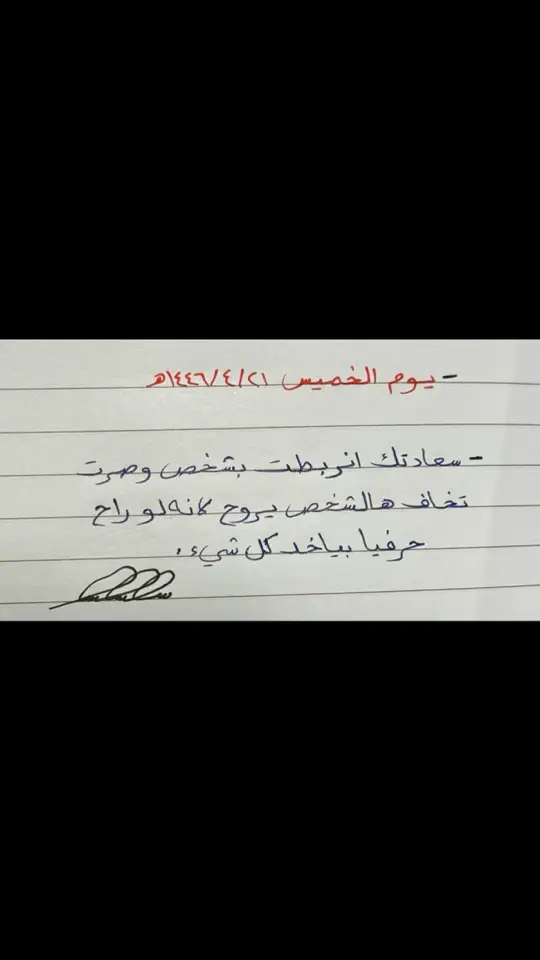 - يوم الخميس ١٤٤٦/٤/٢١هـ
- سعادتك انربطت بشخص وصرت
تخاف هالشخص يروح لانه لو راح
حرفيا بياخد كل شيء.